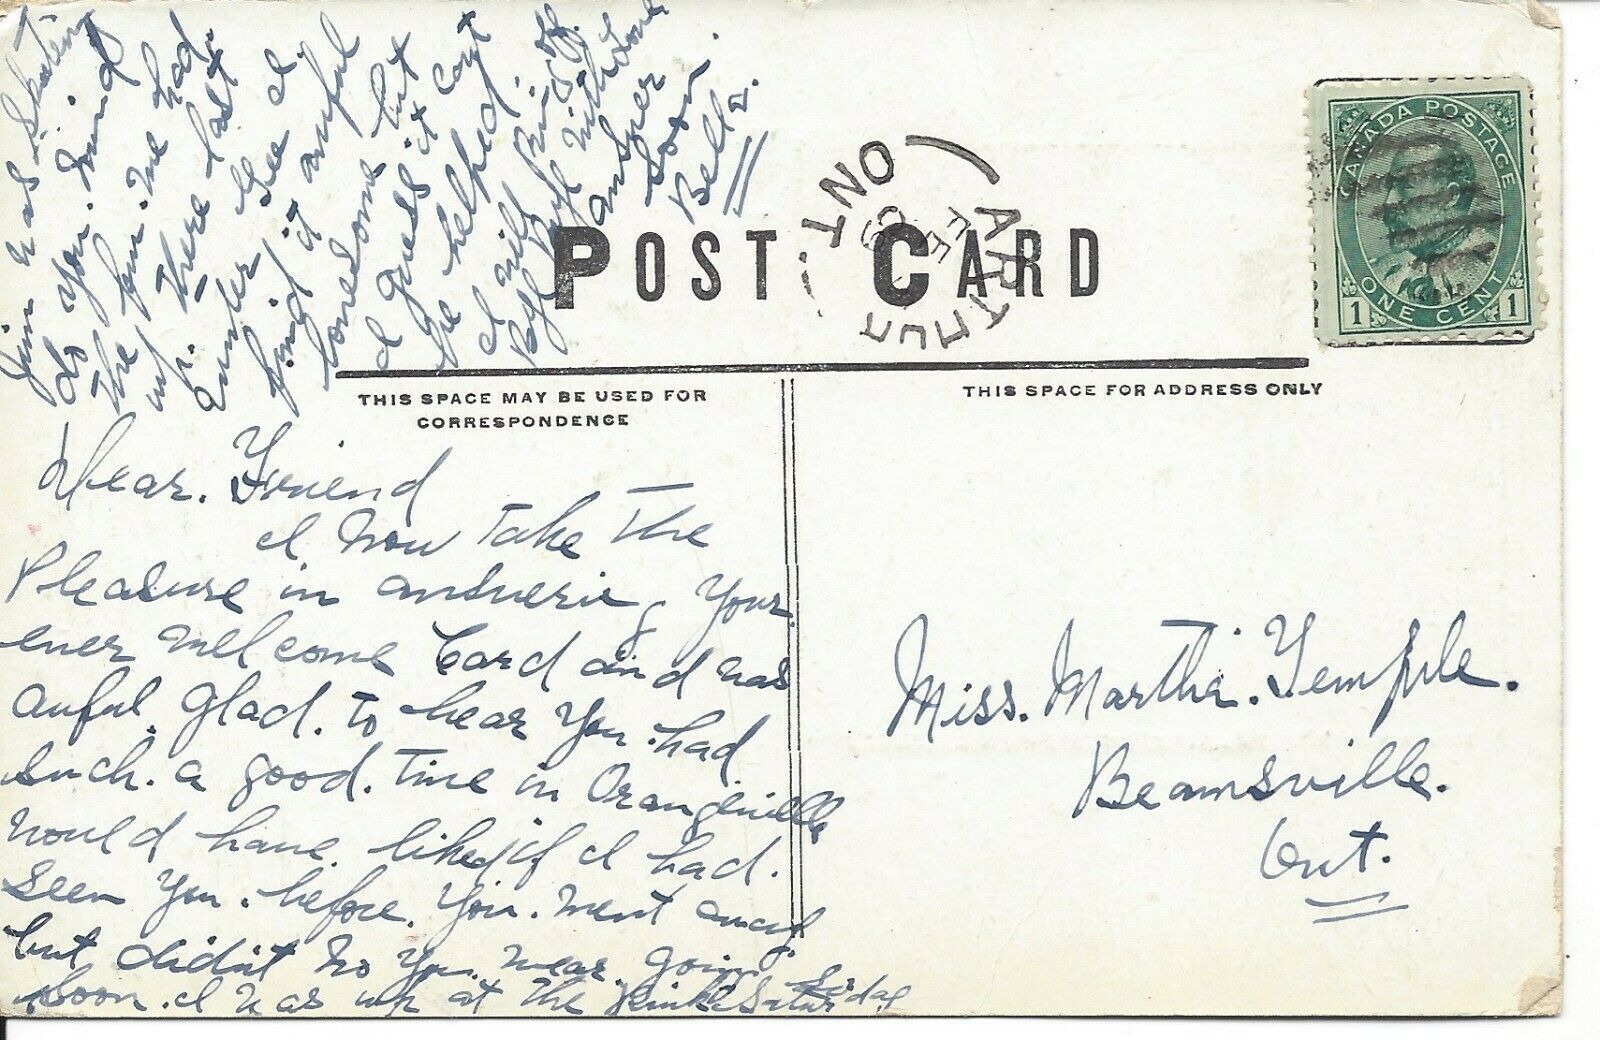 POST CARD
CANADA POSTAGE
ONE CENT
1 1
ARTHUR
ONT.
FE
09
THIS SPACE MAY BE USED FOR
CORRESPONDENCE
THIS SPACE FOR ADDRESS ONLY
Dear. Friend
I now take the
Pleasure in answering Your.
ever welcome Card and was
awful. glad. to hear You. had
such. a good. time in Orangeville
would have. liked if I had.
seen You. before. You. went away.
but didint no You. wear going
soon. I was up at the Rink Saturday
Jim was skating
do you. mind
the fun. we had
up. there last
winter Gee I
find it awful
lonesome but
I guess it cant
be helped.
I will Ring off.
Bye Bye With Love
answer
soon.
Bella.
Miss. Martha. Temple.
Beamsville.
Ont.